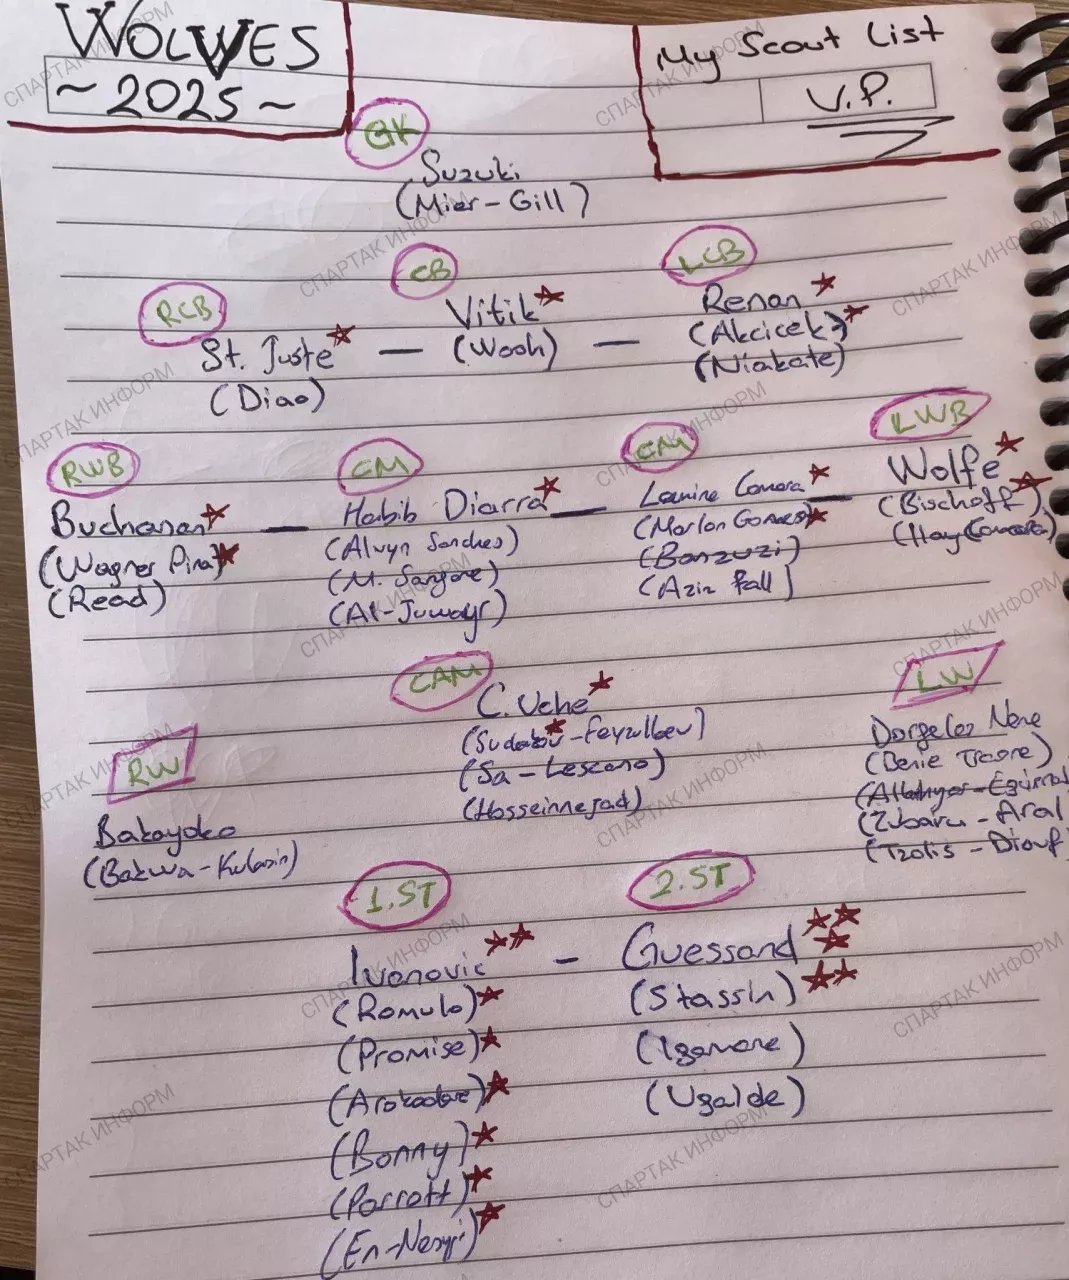 WOLVES
~ 2025 ~
My Scout List
V.P.
GK
Suzuki
(Mier - Gill)
RCB
St. Juste
(Diao)
CB
Vitik
(Wooh)
LCB
Renan
(Akcicek)
(Niakate)
RWB
Buchanan
(Wagner Pina)
(Read)
CM
Habib Diarra
(Alvyn Sanches)
(M. Sangare)
(Al-Juwayr)
CM
Lamine Camara
(Marlon Gomes)
(Banzuzi)
(Aziz Fall)
LWB
Wolfe
(Bischoff)
CAM
C. Uche
(Sudakov - Feyzullaev)
(Sa - Lescano)
(Hosseinnejad)
RW
Bakayoko
(Bakwa - )
LW
Dorgeles Nene
(Benie Traore)
(Zubaru - Aral
(Tzolis - Diouf)
1.ST
Ivanovic
(Romulo)
(Promise)
(Arokodare)
(Bonny)
(Parrott)
(En-Nesyri)
2.ST
Guessand
(Stassin)
(Igamane)
(Ugalde)
СПАРТАК ИНФОРМ